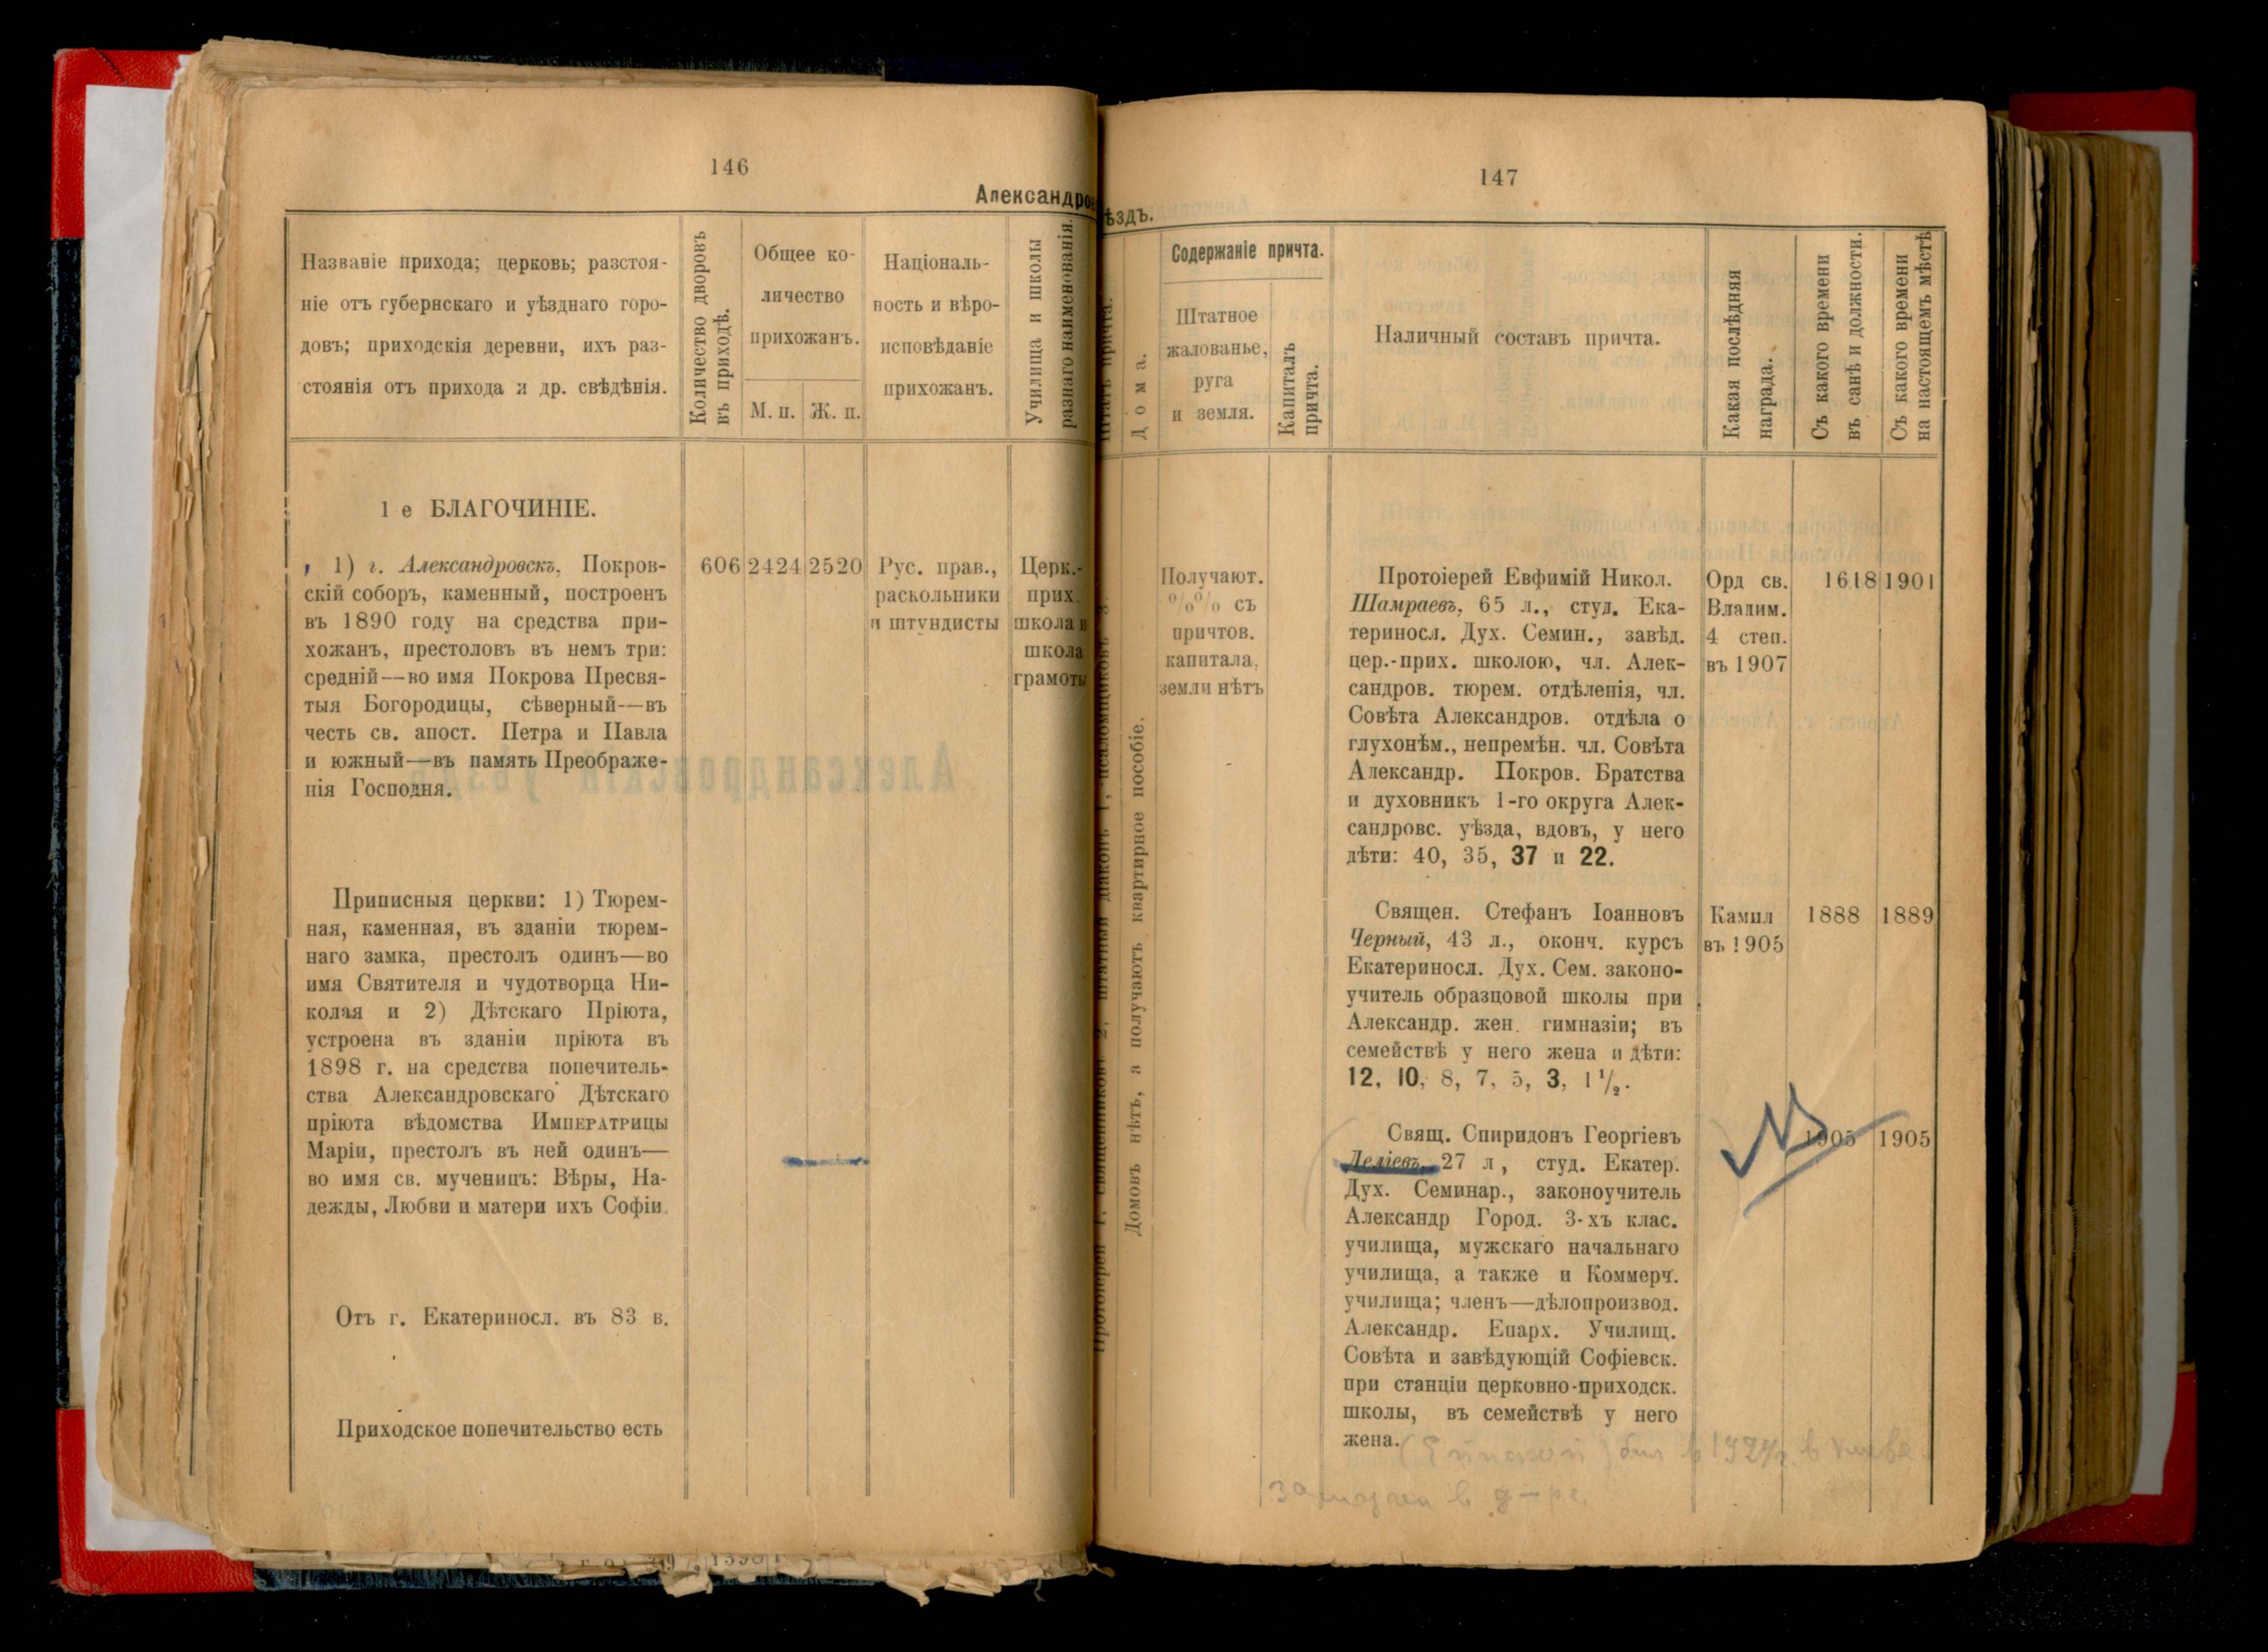 146
Александров
Названіе прихода; церковь; разстоя-
ніе отъ губернскаго и уѣзднаго горо-
довъ; приходскія деревни, ихъ раз-
стоянія отъ прихода и др. свѣдѣнія.
Количество дворовъ
въ приходѣ.
Общее ко-
личество
прихожанъ.
М. п.
Ж. п.
Націоналъ-
ность и вѣро-
исповѣданіе
прихожанъ.
Училища и школы
разнаго наименованія.
1 е БЛАГОЧИНІЕ.
1) г. Александровскъ, Покров-
скій соборъ, каменный, построенъ
въ 1890 году на средства при-
хожанъ, престоловъ въ немъ три:
средній—во имя Покрова Пресвя-
тыя Богородицы, сѣверный—въ
честь св. апост. Петра и Павла
и южный—въ память Преображе-
нія Господня.
606
2424
2520
Рус. прав.,
раскольники
и штундисты
Церк.-
прих.
школа и
школа
грамоты
Приписныя церкви: 1) Тюрем-
ная, каменная, въ зданіи тюрем-
наго замка, престолъ одинъ—во
имя Святителя и чудотворца Ни-
колая и 2) Дѣтскаго Пріюта,
устроена въ зданіи пріюта въ
1898 г. на средства попечитель-
ства Александровскаго Дѣтскаго
пріюта вѣдомства Императрицы
Маріи, престолъ въ ней одинъ—
во имя св. мученицъ: Вѣры, На-
дежды, Любви и матери ихъ Софіи.
Отъ г. Екатериносл. въ 83 в.
Приходское попечительство есть
147
ѣздъ.
Штатъ причта.
Дома.
Содержаніе причта.
Штатное
жалованье,
руга
и земля.
Капиталъ
причта.
Наличный составъ причта.
Какая послѣдняя
награда.
Съ какого времени
въ санѣ и должности.
Съ какого времени
на настоящемъ мѣстѣ
Протоіерей 1, священниковъ 2, штатный діаконъ 1, псаломщиковъ 3.
Домовъ нѣтъ, а получаютъ квартирное пособіе.
Получают.
%% съ
причтов.
капитала,
земли нѣтъ
Протоіерей Евфимій Никол.
Шамраевъ, 65 л., студ. Ека-
териносл. Дух. Семин., завѣд.
цер.-прих. школою, чл. Алек-
сандров. тюрем. отдѣленія, чл.
Совѣта Александров. отдѣла о
глухонѣм., непремѣн. чл. Совѣта
Александр. Покров. Братства
и духовникъ 1-го округа Алек-
сандровс. уѣзда, вдовъ, у него
дѣти: 40, 35, 37 и 22.
Орд св.
Владим.
4 степ.
въ 1907
1618
1901
Священ. Стефанъ Іоанновъ
Черный, 43 л., оконч. курсъ
Екатериносл. Дух. Сем. законо-
учитель образцовой школы при
Александр. жен. гимназіи; въ
семействѣ у него жена и дѣти:
12, 10, 8, 7, 5, 3, 1 1/2.
Камил
въ 1905
1888
1889
Свящ. Спиридонъ Георгіевъ
Деліевъ, 27 л, студ. Екатер.
Дух. Семинар., законоучитель
Александр Город. 3-хъ клас.
училища, мужскаго начальнаго
училища, а также и Коммерч.
училища; членъ—дѣлопроизвод.
Александр. Епарх. Училищ.
Совѣта и завѣдующій Софіевск.
при станціи церковно-приходск.
школы, въ семействѣ у него
жена.
1905
1905
(Епископ) был в 1924 г. в
в